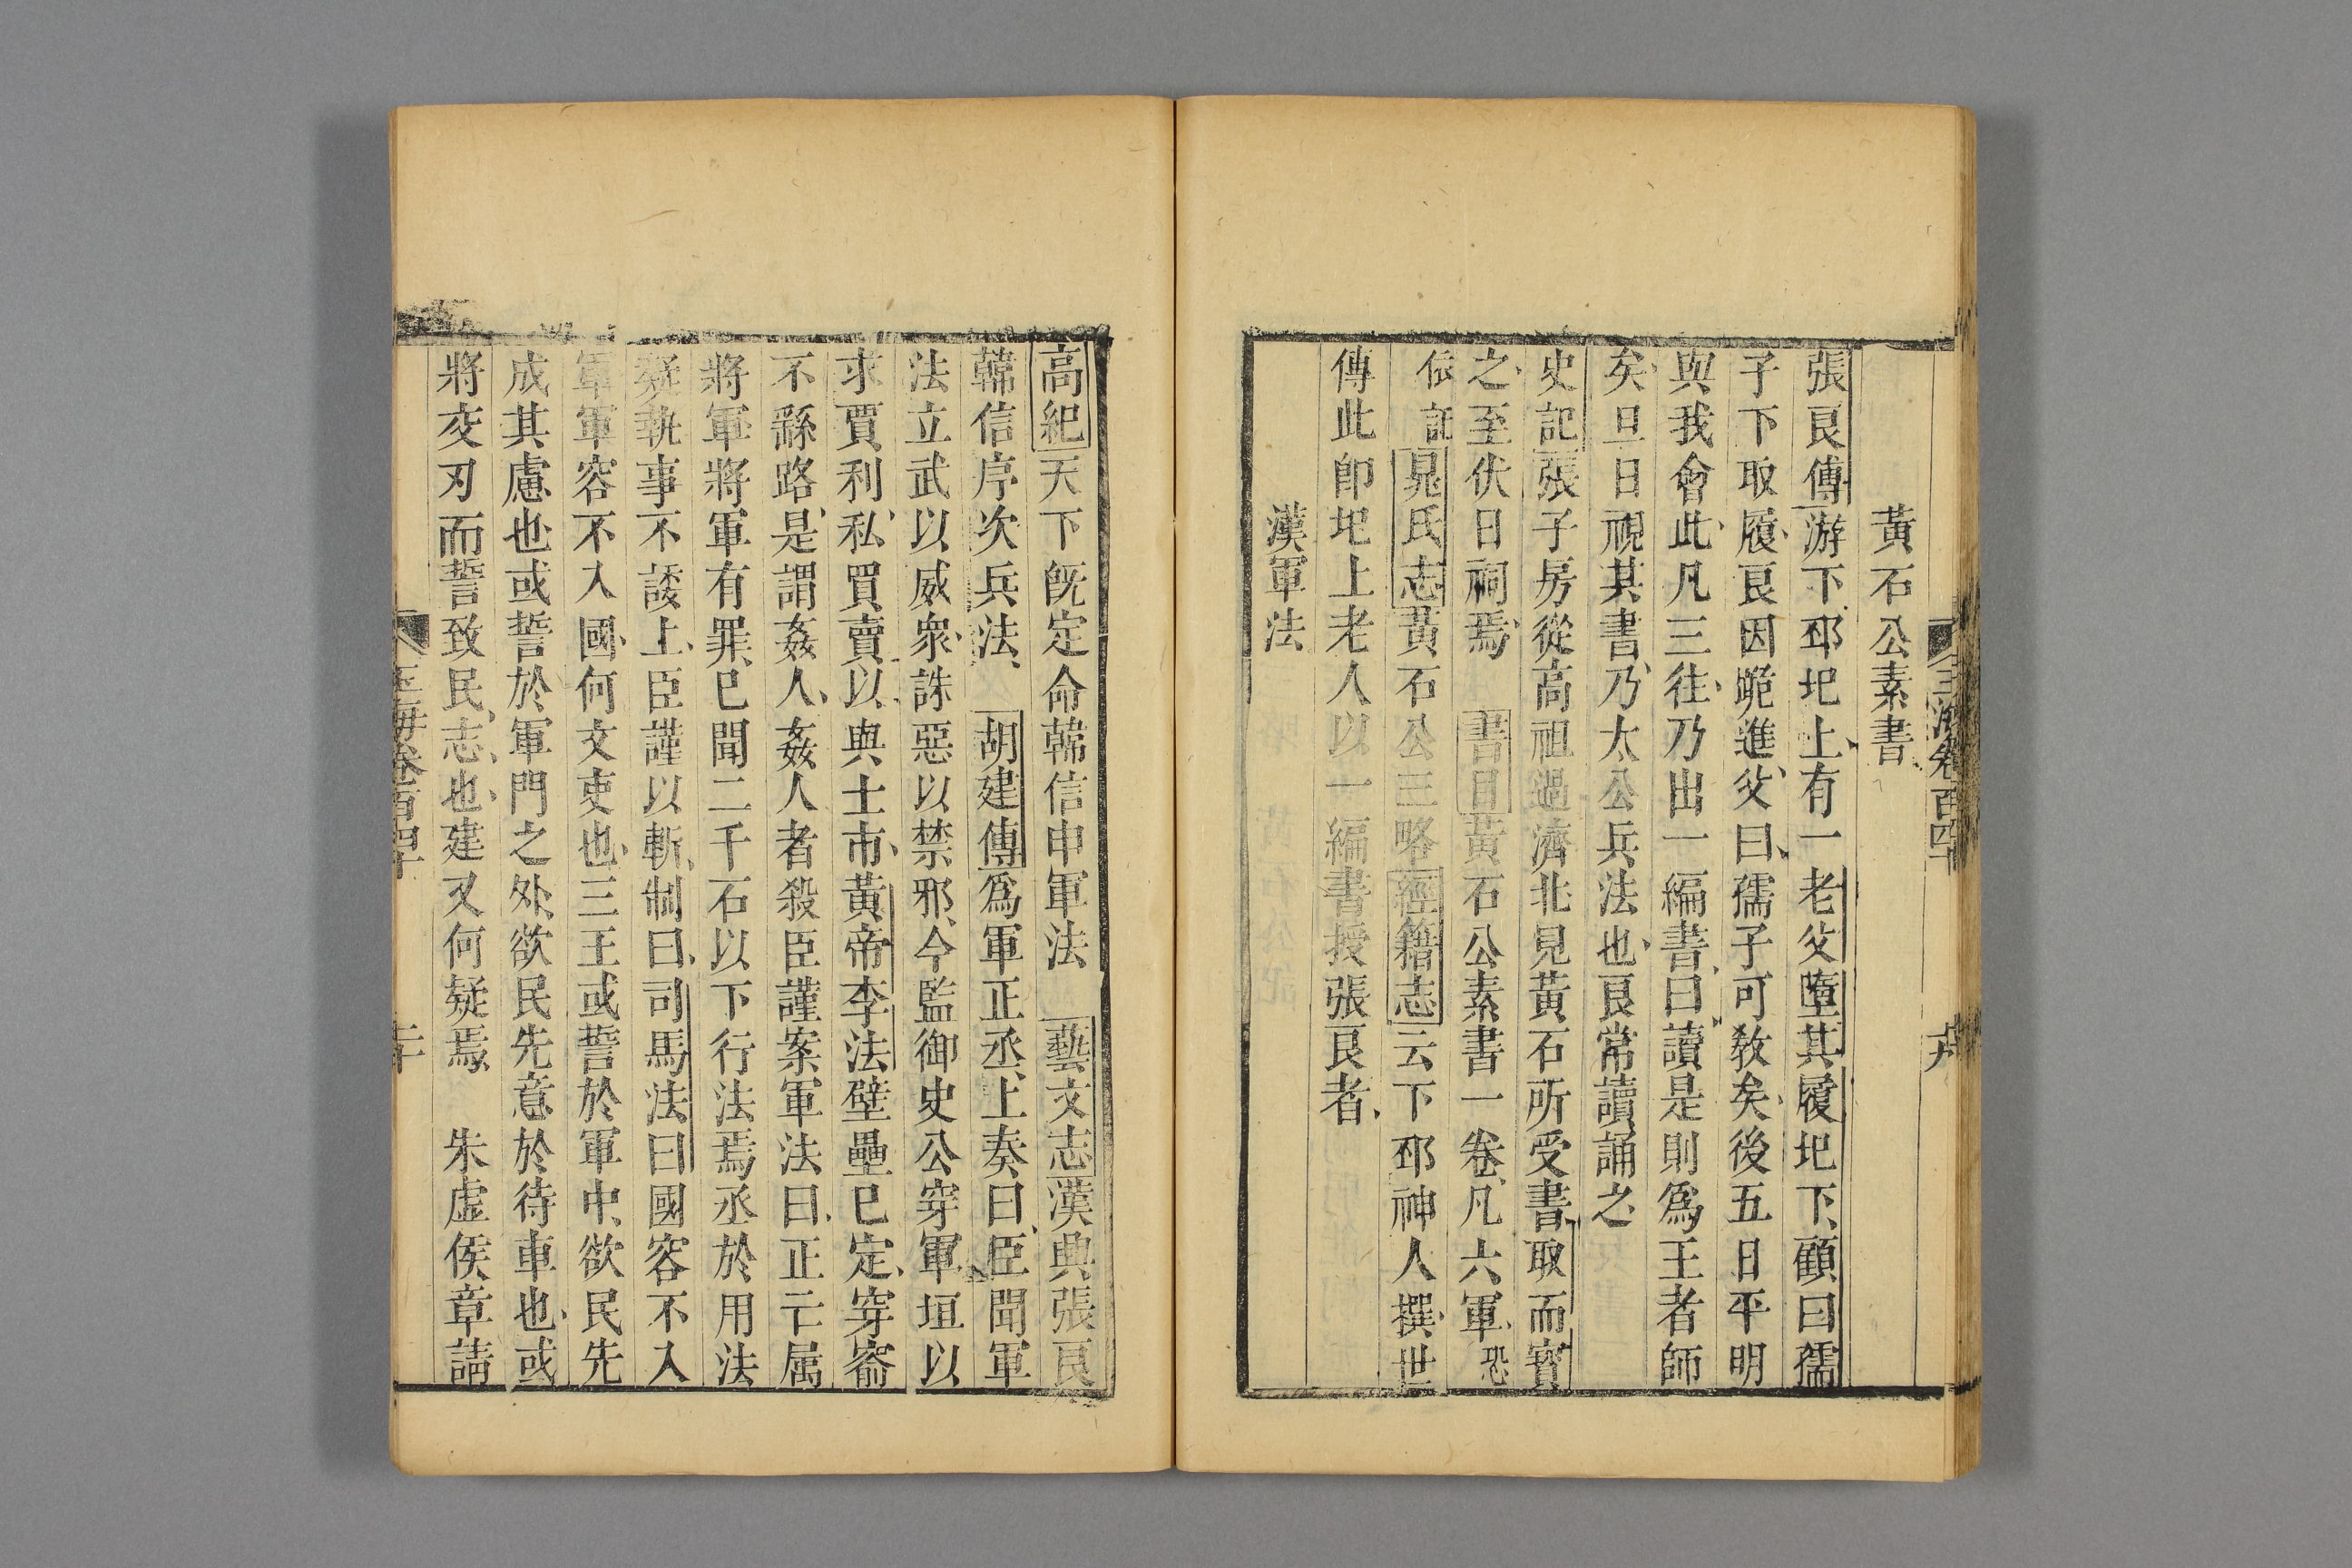 黃石公素書
張良傳游下邳圯上有一老父墮其履圯下顧曰孺
子下取履良因跪進父曰孺子可教矣後五日平明
與我會此凡三往乃出一編書曰讀是則爲王者師
矣旦日視其書乃太公兵法也良常讀誦之
史記張子房從高祖過濟北見黃石所受書取而寶
之至伏日祠焉 書目黃石公素書一卷凡六軍恐
依託晁氏志黃石公三略經籍志云下邳神人撰世
傳此卽圯上老人以一編書授張良者
漢軍法
高紀天下旣定命韓信申軍法 藝文志漢典張良
韓信序次兵法 胡建傳爲軍正丞上奏曰臣聞軍
法立武以威衆誅惡以禁邪今監御史公穿軍垣以
求賈利私買賣以與士市黃帝李法壁壘已定穿窬
不繇路是謂姦人姦人者殺臣謹案軍法曰正亡属
將軍將軍有罪已聞二千石以下行法焉丞於用法
疑執事不諉上臣謹以斬制曰司馬法曰國容不入
軍軍容不入國何文吏也三王或誓於軍中欲民先
成其慮也或誓於軍門之外欲民先意於待車也或
將交刃而誓致民志也建又何疑焉 朱虛侯章請
玉海卷百四十 二十